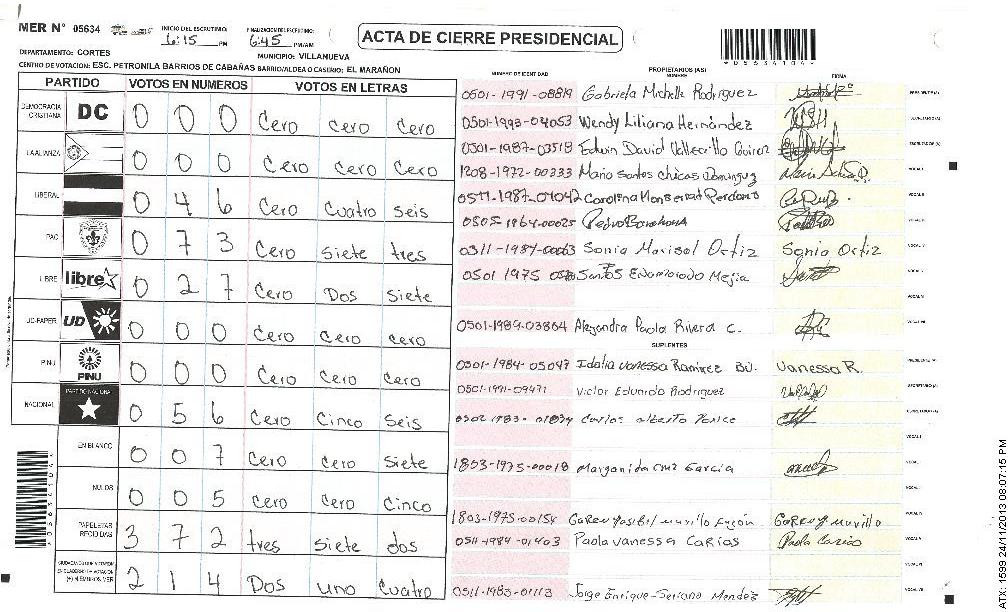 MER N° 05634
INICIO DEL ESCRUTINIO: 6:15 PM
FINALIZACION DEL ESCRUTINIO: 6:45 PM/AM
ACTA DE CIERRE PRESIDENCIAL
DEPARTAMENTO: CORTES
MUNICIPIO: VILLANUEVA
CENTRO DE VOTACION: ESC. PETRONILA BARRIOS DE CABAÑAS BARRIO/ALDEA O CASERIO: EL MARAÑON
PARTIDO VOTOS EN NUMEROS VOTOS EN LETRAS
NUMERO DE IDENTIDAD PROPIETARIOS (AS) NOMBRE FIRMA
DEMOCRACIA CRISTIANA DC 0 0 0 Cero Cero Cero
LA ALIANZA 0 0 0 Cero Cero Cero
LIBERAL 0 4 6 Cero Cuatro Seis
PAC 0 7 3 Cero Siete tres
LIBRE libre 0 2 7 Cero Dos Siete
UD-FAPER UD 0 0 0 Cero Cero Cero
PINU PINU 0 0 0 Cero Cero Cero
NACIONAL PARTIDO NACIONAL 0 5 6 Cero Cinco Seis
EN BLANCO 0 0 7 Cero Cero Siete
NULOS 0 0 5 Cero Cero Cinco
PAPELETAS RECIBIDAS 3 7 2 tres siete dos
(+) MIEMBROS MER 2 1 4 Dos uno Cuatro
0501-1991-08819 Gabriela Michelle Rodriguez
0501-1993-04053 Wendy Liliana Hernández
0501-1987-03518 Edwin David
1208-1972-00333 Mario Santos Chicas Dominguez
0511-1987-01042 Carolina Monserrat Perdomo
0505-1964-00025 Pedro Barahona
0311-1987-00063 Sonia Marisol Ortiz Sonia Ortiz
0501 1975 Santos Mejia
0501-1989-03864 Alejandra Paola Rivera C.
SUPLENTES
0501-1984-05047 Idalia Vanessa Ramirez Vanessa R.
0501-1991-09471 Victor Eduardo Rodriguez
0502-1983-01834 Carlos Alberto Ponce
1803-1975-00018 Margarida Cruz Garcia
1803-1975-00154 Murillo
0511-1984-01403 Paola Vanessa Carias Paola Carias
0511-1983-01113 Jorge Enrique Soriano Mendez
05634104
ATX: 1599 24/11/2013 08:07:15 PM